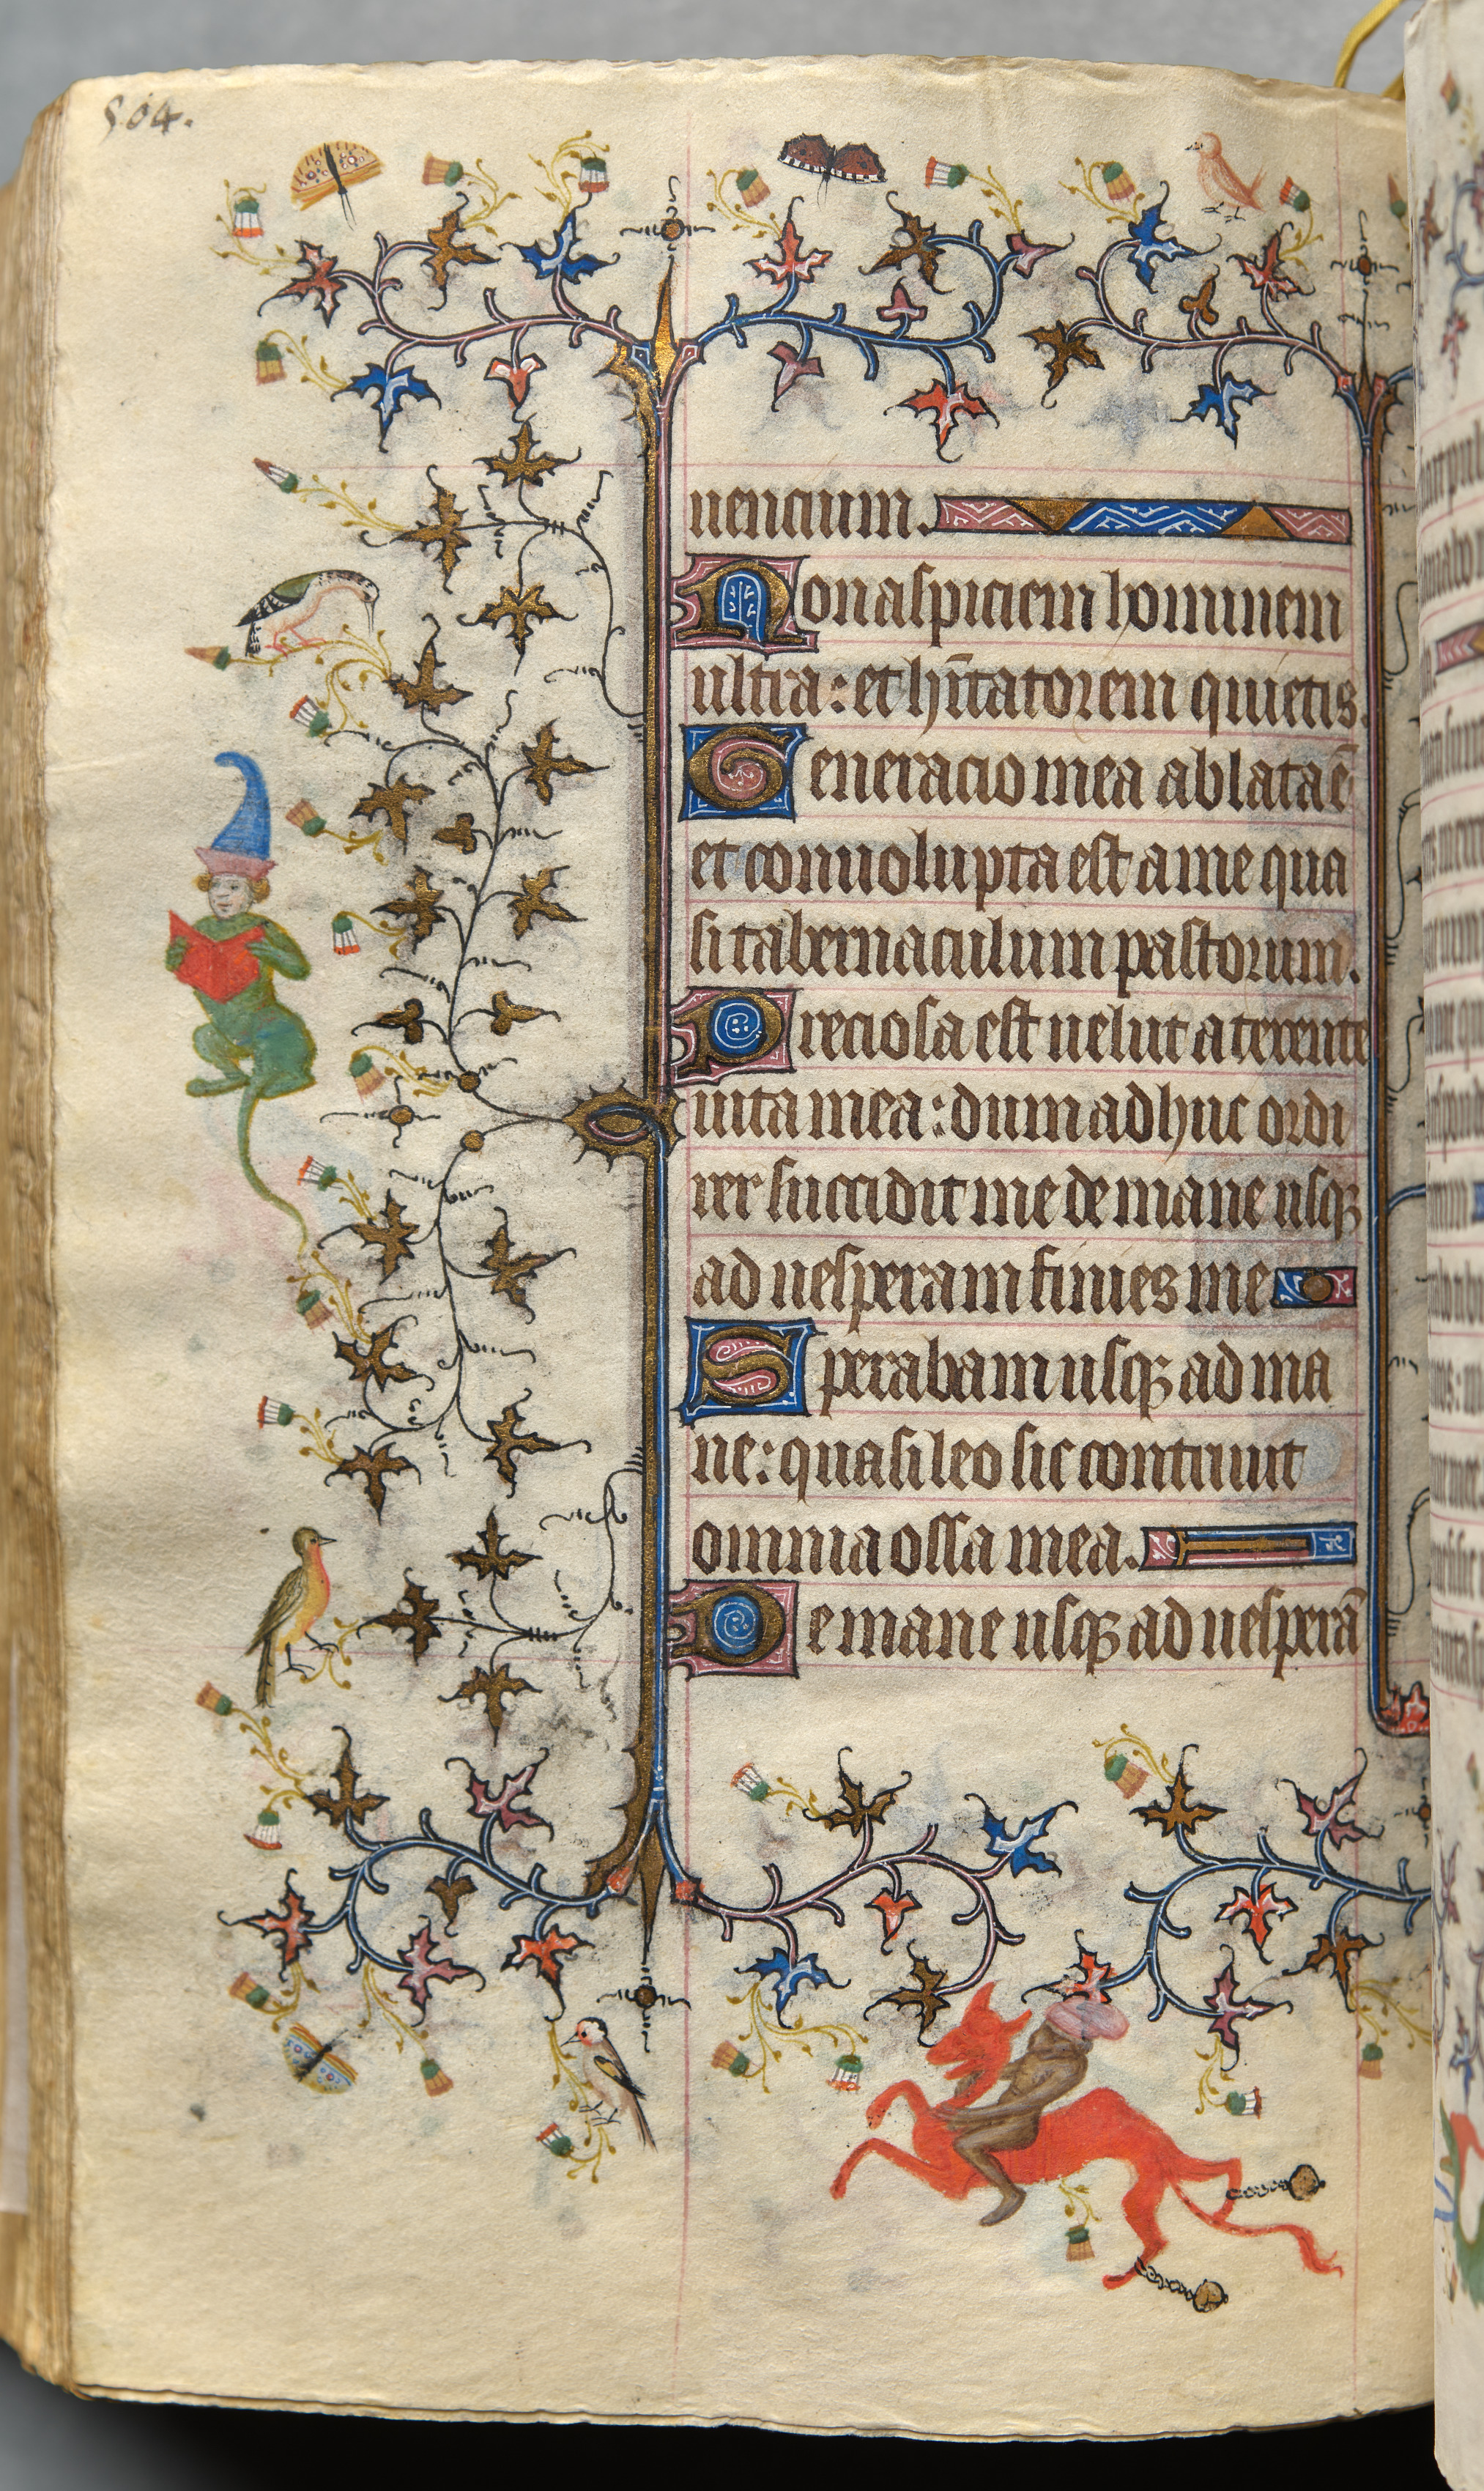 504.
uencium.
Non aspiciem hominem
ultra: et hītatorem quietis.
Generacio mea ablata ē
et conuoluta est a me qua
si tabernaculum pastorum.
Preciosa est uelut a texente
uita mea: dum adhuc ordi
rer succidit me de mane usqꝫ
ad uesperam finies me
Sperabam usqꝫ ad ma
ne: quasi leo sic contriuit
omnia ossa mea.
De mane usqꝫ ad uesperā